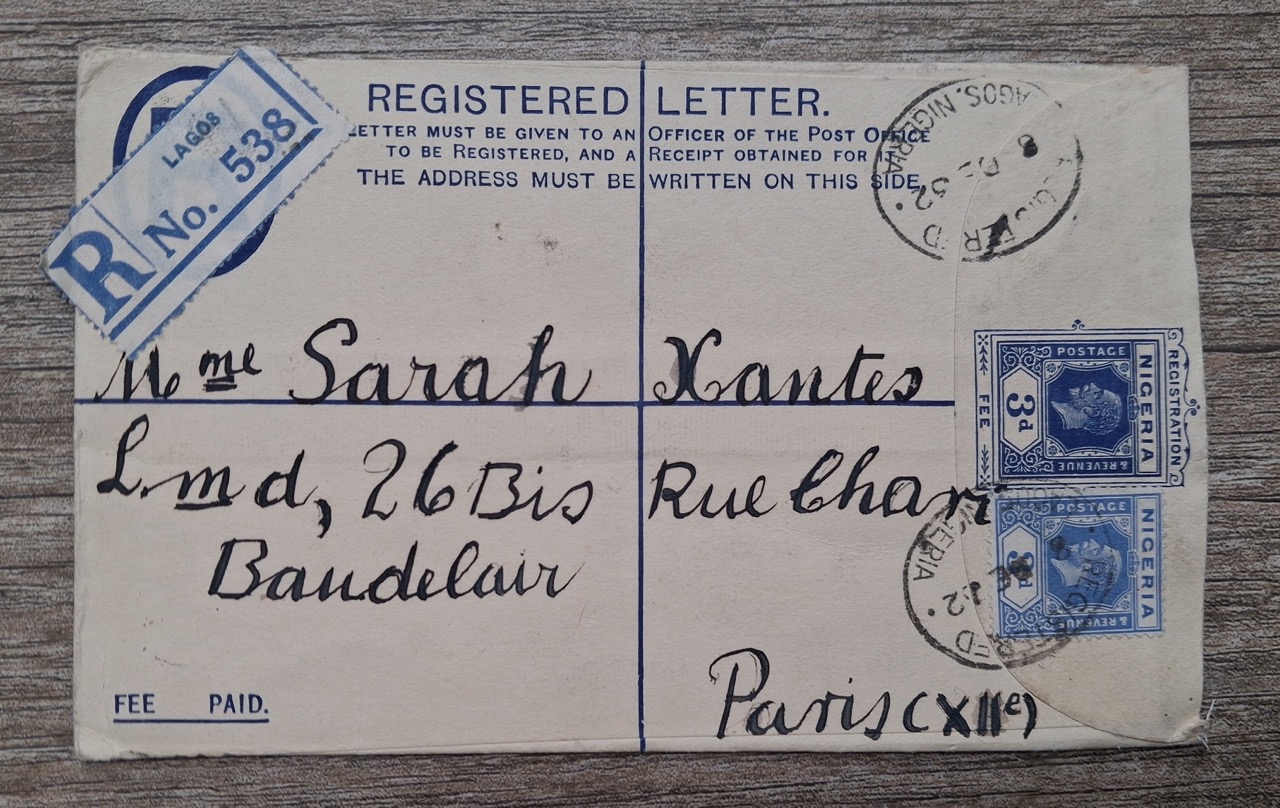 REGISTERED LETTER.
LETTER MUST BE GIVEN TO AN OFFICER OF THE POST OFFICE
TO BE REGISTERED, AND A RECEIPT OBTAINED FOR
THE ADDRESS MUST BE WRITTEN ON THIS SIDE.
LAGOS
R No. 538
LAGOS, NIGERIA
8 DE 32
REGISTERED
Mme Sarah Xantes
L.m d, 26 Bis Rue Char
Baudelair
Paris (XIIe)
FEE PAID.
REGISTRATION
NIGERIA
POSTAGE
& REVENUE
3d
FEE
NIGERIA
POSTAGE
& REVENUE
3d
NIGERIA
REGISTERED